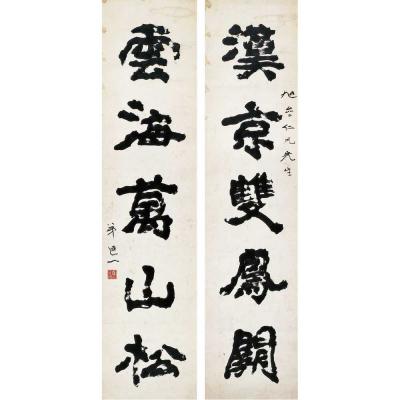 漢京雙鳳闕
旭
仁兄先生
雲海萬山松
弟